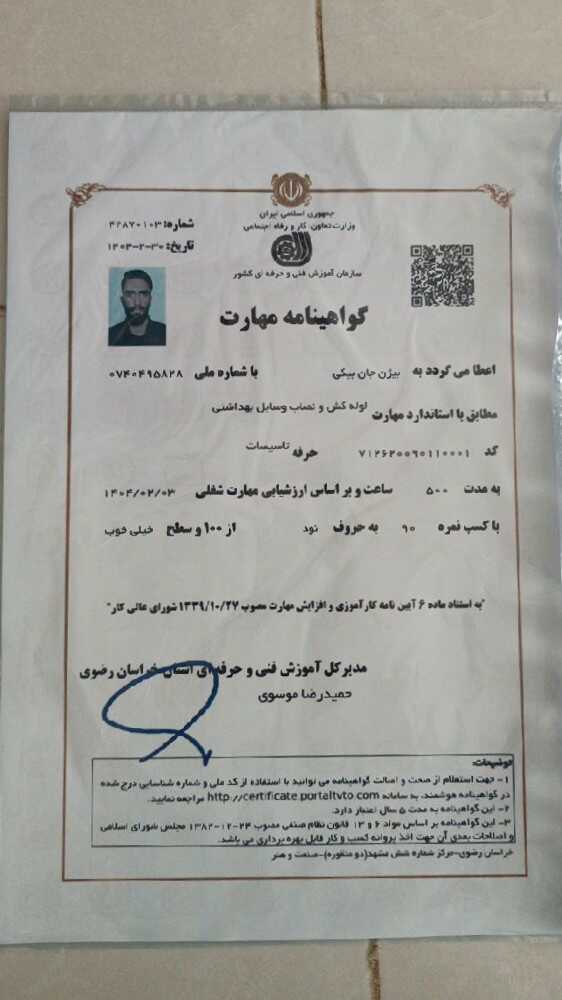 جمهوری اسلامی ایران
وزارت تعاون، کار و رفاه اجتماعی
سازمان آموزش فنی و حرفه ای کشور
تاریخ: ۱۴۰۴-۲-۳۰
گواهینامه مهارت
اعطا می گردد به بیژن جان بیکی با شماره ملی ۰۷۴۰۴۹۵۸۲۸
مطابق با استاندارد مهارت لوله کش و نصاب وسایل بهداشتی
کد ۷۱۲۶۲۰۰۹۰۱۱۰۰۰۱ حرفه تاسیسات
به مدت ۵۰۰ ساعت و بر اساس ارزشیابی مهارت شغلی ۱۴۰۴/۰۲/۰۳
با کسب نمره ۹۰ به حروف نود از ۱۰۰ و سطح خیلی خوب
"به استناد ماده ۶ آیین نامه کارآموزی و افزایش مهارت مصوب ۱۳۳۹/۱۰/۲۷ شورای عالی کار"
مدیرکل آموزش فنی و حرفه ای استان خراسان رضوی
حمیدرضا موسوی
توضیحات:
۱- جهت استعلام از صحت و اصالت گواهینامه می توانید با استفاده از کد ملی و شماره شناسایی درج شده
در گواهینامه هوشمند، به سامانه http://certificate.portaltvto.com مراجعه نمایید.
۲- این گواهینامه به مدت ۵ سال اعتبار دارد.
۳- این گواهینامه بر اساس مواد ۶ و ۱۳ قانون نظام صنفی مصوب ۲۴-۱۲-۱۳۸۲ مجلس شورای اسلامی
و اصلاحات بعدی آن جهت اخذ پروانه کسب و کار قابل بهره برداری می باشد.
خراسان رضوی-مرکز شماره شش مشهد(دو منظوره)-صنعت و هنر